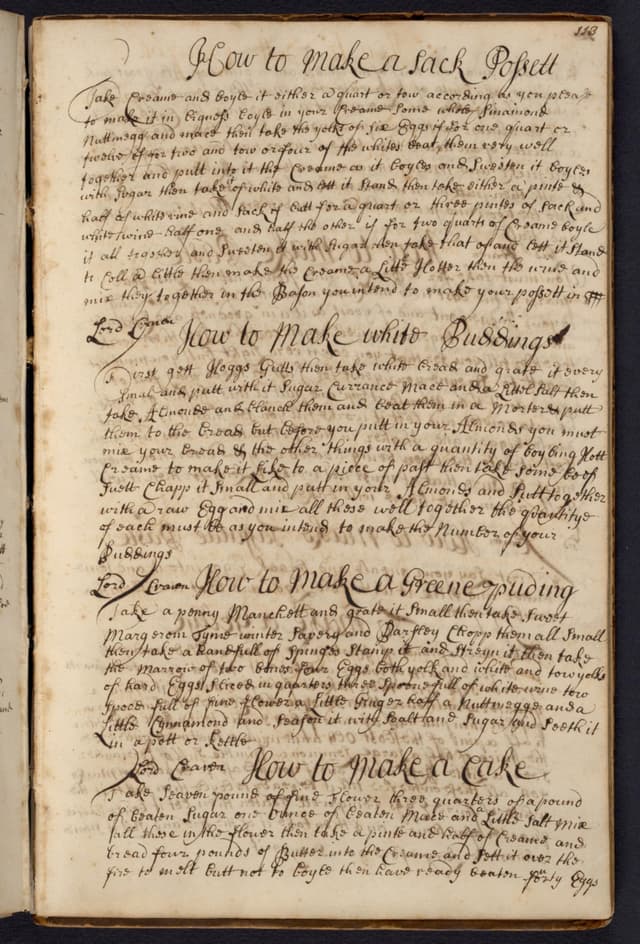 113
How to Make a Sack Possett
Take Creame and boyle it either a quart or tow according as you please
to make it in Bigness boyle in your Creame Some whole Sinaimond
Nuttmegg and mace then take the yolks of six Eggs if for one quart or
twelve if for two and tow or four of the whites beat them very well
together and putt into it the Creame as it boyles and Sweeten it boyles
with Sugar then take of white and lett it Stand then take either a pinte &
half of white wine and Sack if butt for a quart or three pintes of Sack and
white wine half one and half the other if for two quarts of Creame boyle
it all together and Sweeten it with Sugar then take that of and lett it Stand
to Coll a little then make the Creame a Little Hotter then the wine and
mix they together in the Bason you intend to make your possett in
Lord Craven How to Make white Buddings
First gett Hoggs Gutts then take white bread and grate it every
Small and putt with it Sugar Currance Mace and a Littel Salt then
take Almonds and blanch them and beat them in a Morter & putt
them to the bread but before you putt in your Almonds you must
mix your bread & the other things with a quantity of boyling Hott
Creame to make it Like to a piece of past then take Some beef
Suett Chapp it Small and putt in your Almonds and Putt together
with a raw Egg and mix all these well together the quantitye
of each must be as you intend to make the Number of your
Buddings
Lord Craven How to Make a Greene puding
Take a penny Manchett and grate it Small then take Sweet
Margerom Tyme winter Savery and Parsley Chopp them all Small
then take a handfull of Spinges Stamp it and Streyn it then take
the Marrow of two bones four Eggs both yolk and white and tow yolks
of hard Eggs Sliced in quarters three Spoonefull of white wine tow
Spoon full of fine flower a Little Ginger half a Nuttmegg and a
Little Cynnamond and Season it with Sealt and Sugar and Seeth it
in a pott or Kettle
Lord Craven How to Make a Cake
Take Seaven pound of fine flower three quarters of a pound
of beaten Sugar one ounce of beaten Mace and a Little Salt Mix
all these in the flower then take a pinte and half of Creame and
bread four pounds of Butter into the Creame and Sett it over the
fire to melt butt not to boyle then have ready beaten forty Eggs